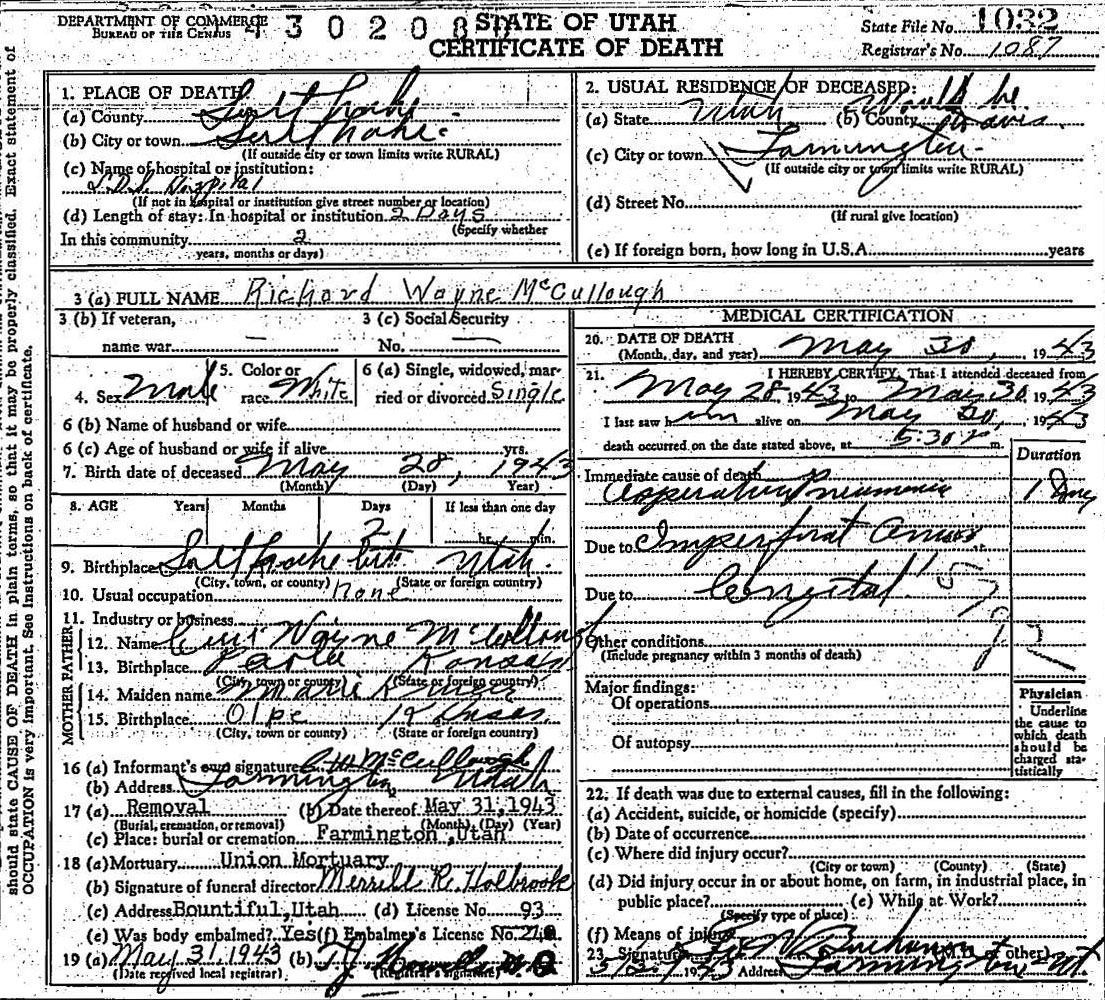 DEPARTMENT OF COMMERCE
BUREAU OF THE CENSUS
4 3 0 2 0 8
STATE OF UTAH
CERTIFICATE OF DEATH
State File No. 1032
Registrar's No. 1087
should state CAUSE OF DEATH in plain terms, so that it may be properly classified. Exact statement of
OCCUPATION is very important. See instructions on back of certificate.
1. PLACE OF DEATH
(a) County Salt Lake
(b) City or town Salt Lake
(If outside city or town limits write RURAL)
(c) Name of hospital or institution:
L.D.S. Hospital
(If not in hospital or institution give street number or location)
(d) Length of stay: In hospital or institution 2 Days
(Specify whether
In this community 2
years, months or days)
2. USUAL RESIDENCE OF DECEASED: Would be
(a) State Utah (b) County Davis
(c) City or town Farmington
(If outside city or town limits write RURAL)
(d) Street No.
(If rural give location)
(e) If foreign born, how long in U.S.A. years
3 (a) FULL NAME Richard Wayne McCullough
3 (b) If veteran,
name war —
3 (c) Social Security
No. —
4. Sex Male 5. Color or race White
6 (a) Single, widowed, married or divorced Single
6 (b) Name of husband or wife
6 (c) Age of husband or wife if alive yrs.
7. Birth date of deceased May 28, 1943
(Month) (Day) Year)
8. AGE Years Months Days If less than one day
2 hr. min.
9. Birthplace Salt Lake City Utah
(City, town, or county) (State or foreign country)
10. Usual occupation none
11. Industry or business
FATHER
12. Name Wayne McCullough
13. Birthplace Paola Kansas
(City, town or county) (State or foreign country)
MOTHER
14. Maiden name Marie
15. Birthplace Olpe Kansas
(City, town or county) (State or foreign country)
16 (a) Informant's own signature McCullough
(b) Address Farmington Utah
17 (a) Removal (b) Date thereof May 31, 1943
(Burial, cremation, or removal) (Month) (Day) (Year)
(c) Place: burial or cremation Farmington, Utah
18 (a) Mortuary Union Mortuary
(b) Signature of funeral director Merrill R. Holbrook
(c) Address Bountiful, Utah (d) License No. 93
(e) Was body embalmed? Yes (f) Embalmer's License No.
19 (a) May 31, 1943 (b)
(Date received local registrar) (Registrar's signature)
MEDICAL CERTIFICATION
20. DATE OF DEATH
(Month, day, and year) May 30, 1943
21. I HEREBY CERTIFY, That I attended deceased from
May 28, 1943 to May 30, 1943
I last saw him alive on May 30, 1943
death occurred on the date stated above, at 5:30 P m.
Duration
Immediate cause of death
Pneumonia 1 Day
Due to Imperforat Anus
Due to Congital
Other conditions
(Include pregnancy within 3 months of death)
Major findings:
Of operations
Of autopsy
Physician
Underline
the cause to
which death
should be
charged sta-
tistically
22. If death was due to external causes, fill in the following:
(a) Accident, suicide, or homicide (specify)
(b) Date of occurrence
(c) Where did injury occur?
(City or town) (County) (State)
(d) Did injury occur in or about home, on farm, in industrial place, in
public place? (e) While at Work?
(Specify type of place)
(f) Means of injury
23. Signature Buchanan (M.D. or other)
1943 Address Farmington Ut.